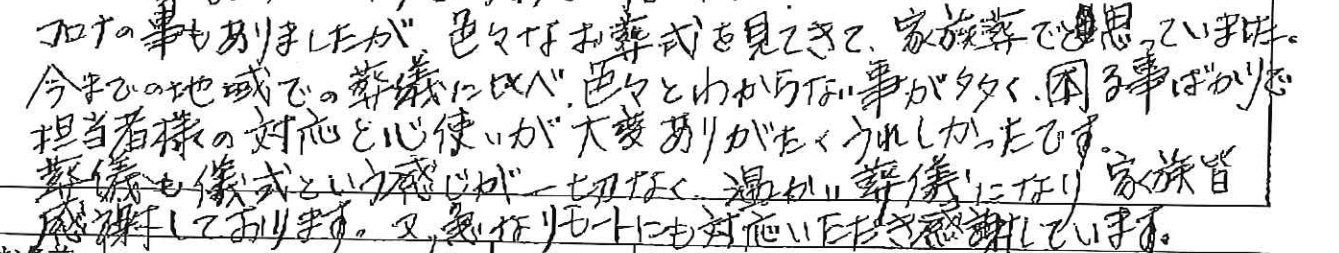 コロナの事もありましたが、色々なお葬式を見てきて、家族葬でと思っていました。
今までの地域での葬儀に比べ、色々とわからない事が多く、困る事ばかりで
担当者様の対応と心使いが大変ありがたくうれしかったです。
葬儀も儀式という感じが一切なく、温かい葬儀になり家族皆
感謝しております。又、急なリモートにも対応いただき感謝しています。